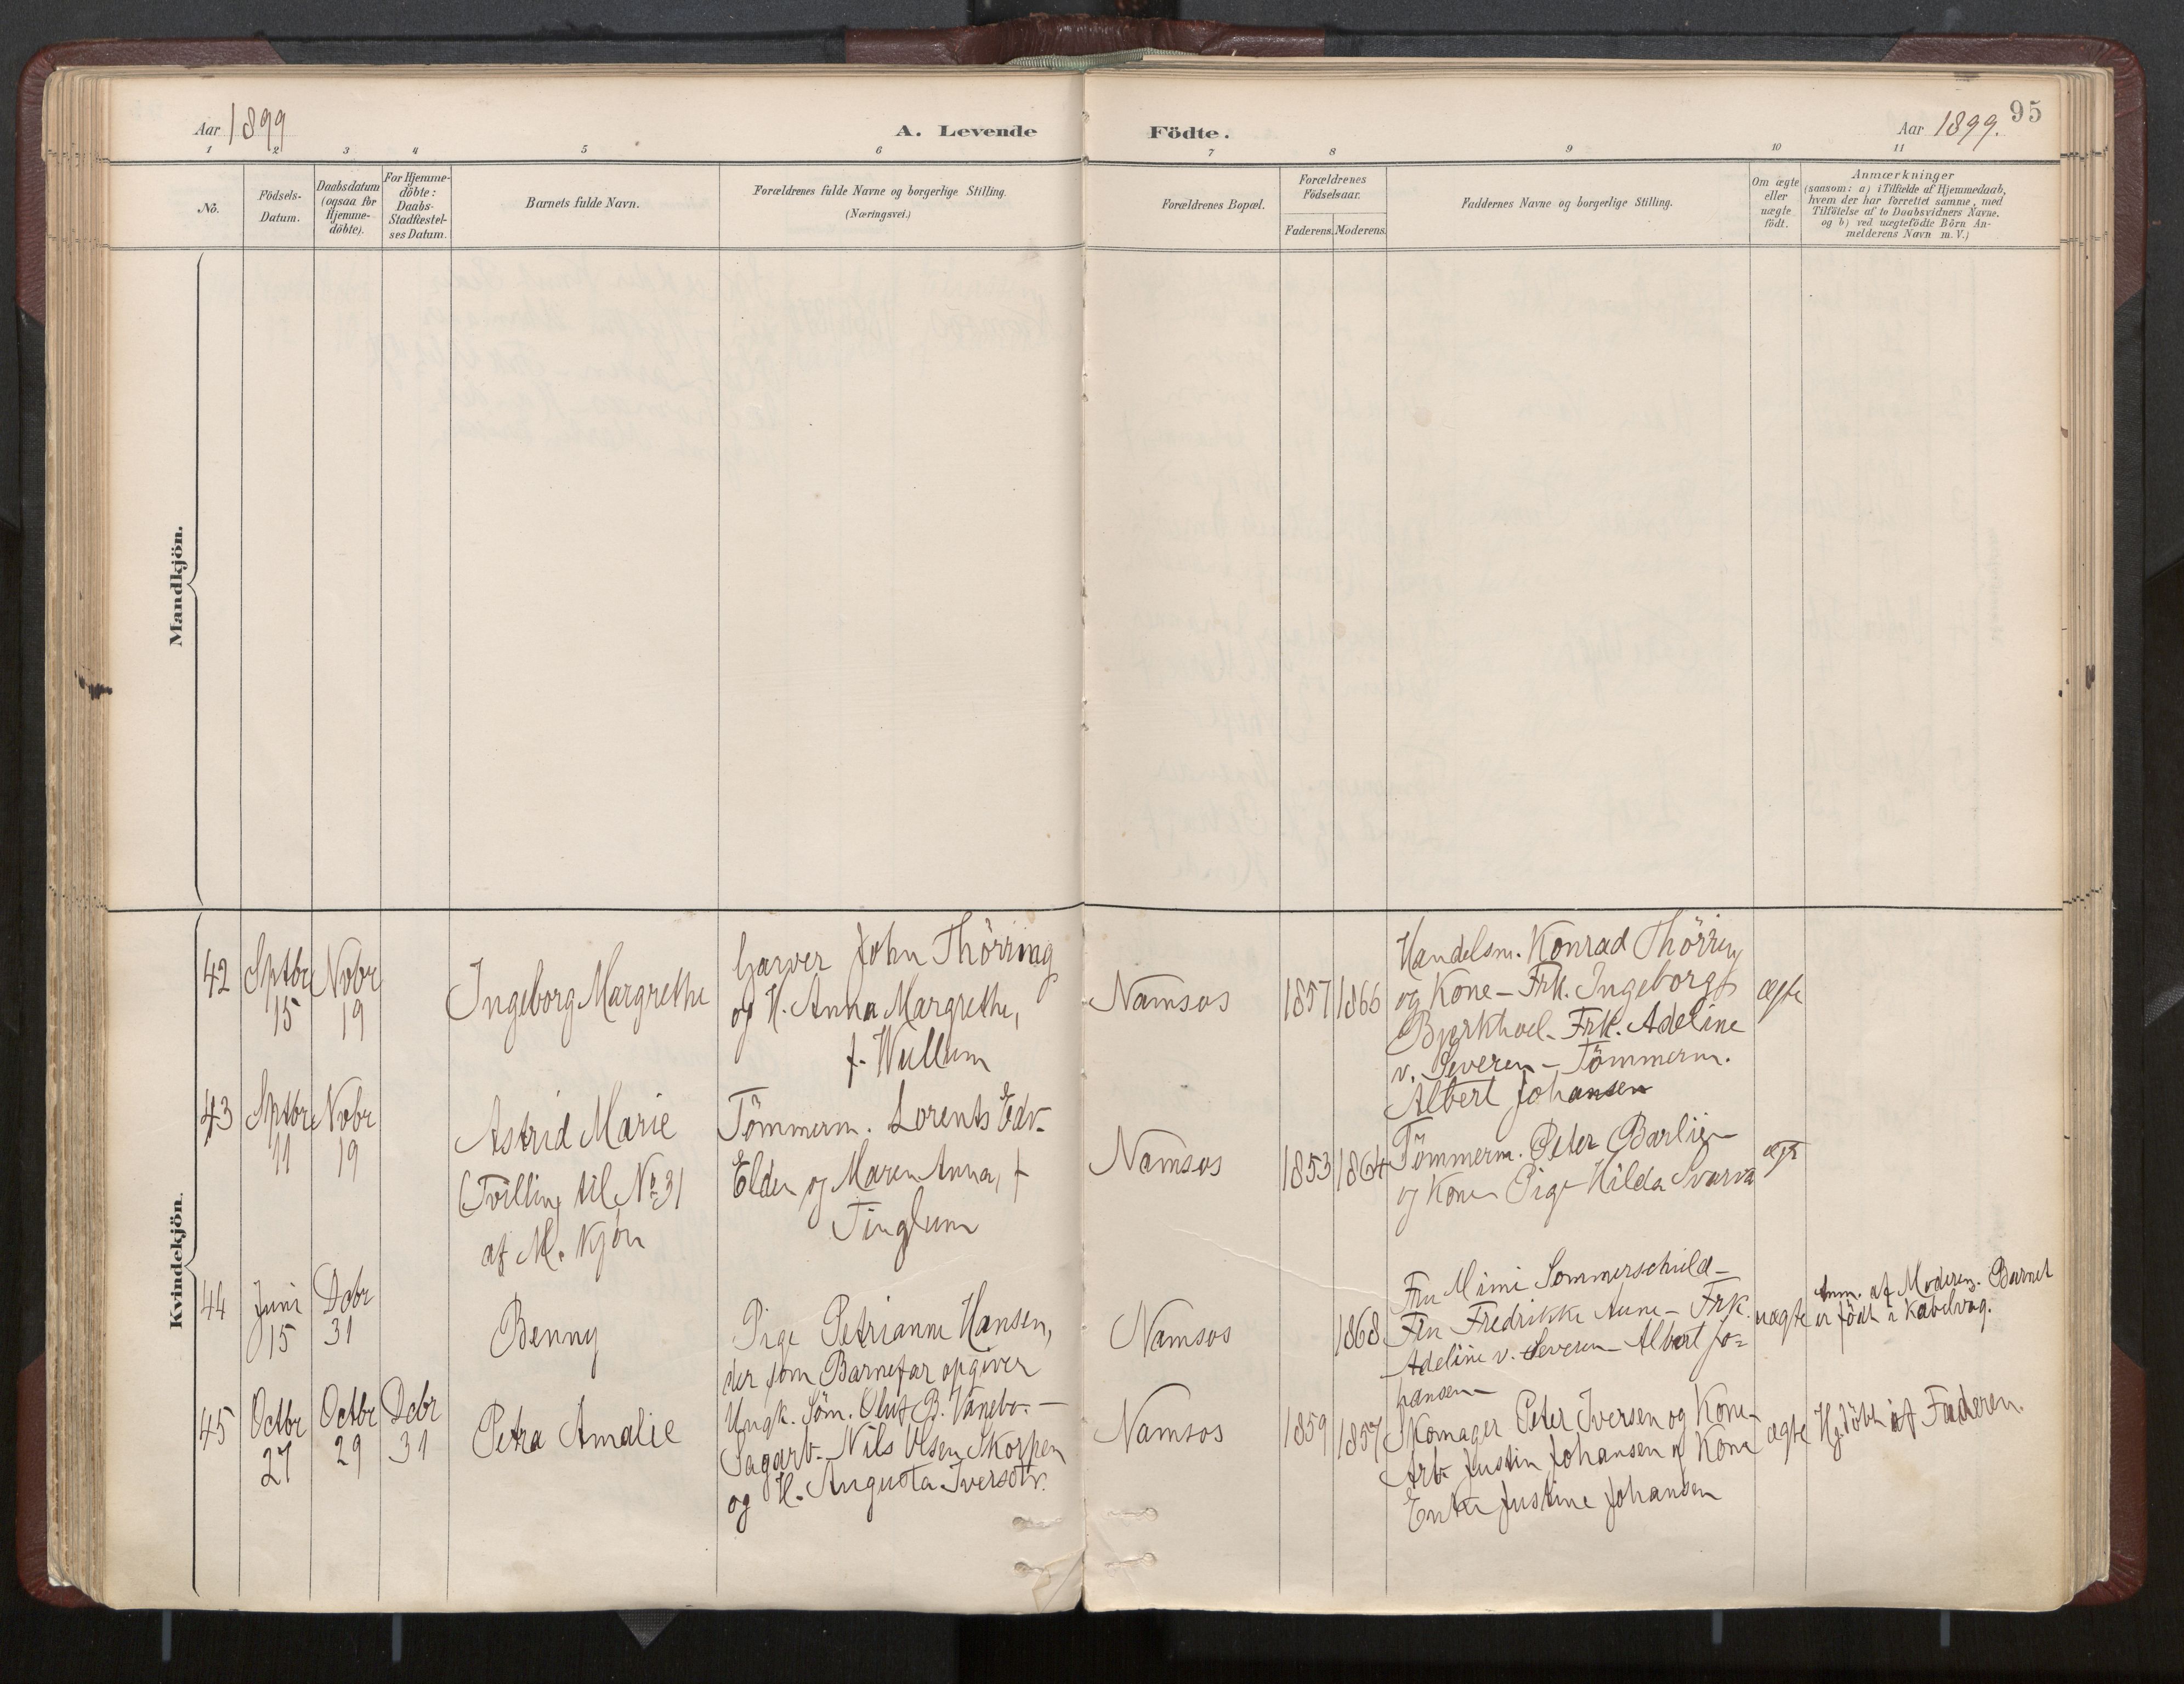 95
Aar 1899
A. Levende Födte.
Aar 1899.
1 2 3 4 5 6 7 8 9 10 11
No.
Födsels-
Datum.
Daabsdatum
(ogsaa for
Hjemme-
döbte).
For Hjemme-
döbte:
Daabs-
Stadfæstel-
ses Datum.
Barnets fulde Navn.
Forældrenes fulde Navne og borgerlige Stilling.
(Næringsvei.)
Forældrenes Bopæl.
Forældrenes
Födselsaar.
Faderens. Moderens.
Faddernes Navne og borgerlige Stilling.
Om ægte
eller
uægte
födt.
Anmærkninger
(saasom: a) i Tilfælde af Hjemmedaab,
hvem der har forrettet samme, med
Tilföielse af to Daabsvidners Navne.
og b) ved uægtefödte Börn An-
melderens Navn m. V.)
Mandkjön.
Kvindekjön.
42
Sptbr
15
Novbr
19
Ingeborg Margrethe
Garver John Thörring
og H. Anna Margrethe,
f. Wullum
Namsos
1857
1866
Handelsm. Konrad Thörring
og Kone - Frk. Ingeborg
Bjerkhoel - Frk. Adeline
v. Severen - Tömmerm.
Albert Johansen
ægte
43
Sptbr
11
Novbr
19
Astrid Marie
(Tvilling til No 31
af M. Kjön
Tömmerm. Lorents Edv.
Elden og Maren Anna, f
Tinglum
Namsos
1853
1864
Tömmerm. Peter Barlien
og Kone Pige Hilda Svarva
ægte
44
Juni
15
Dcbr
31
Benny
Pige Petrianne Hansen,
der som Barnefar opgiver
Ungk. Söm. Oluf B. Vanebo. -
Namsos
1868
Fru Mimi Sommerschield -
Fru Fredrikke Aune - Frk.
Adeline v. Severen - Albert Jo=
hansen -
uægte
Anm. af Moderen. Barnet
er födt i Kabelvag.
45
Octbr
27
Octbr
29
Dcbr
31
Petra Amalie
Sagarb. Nils Olsen Skorpen
og H. Augusta Iversdtr.
Namsos
1859
1857
Skomager Peter Iversen og Kone
Arb. Justin Johansen og Kone
Enke Justine Johansen
ægte
Hj. döbt af Faderen.